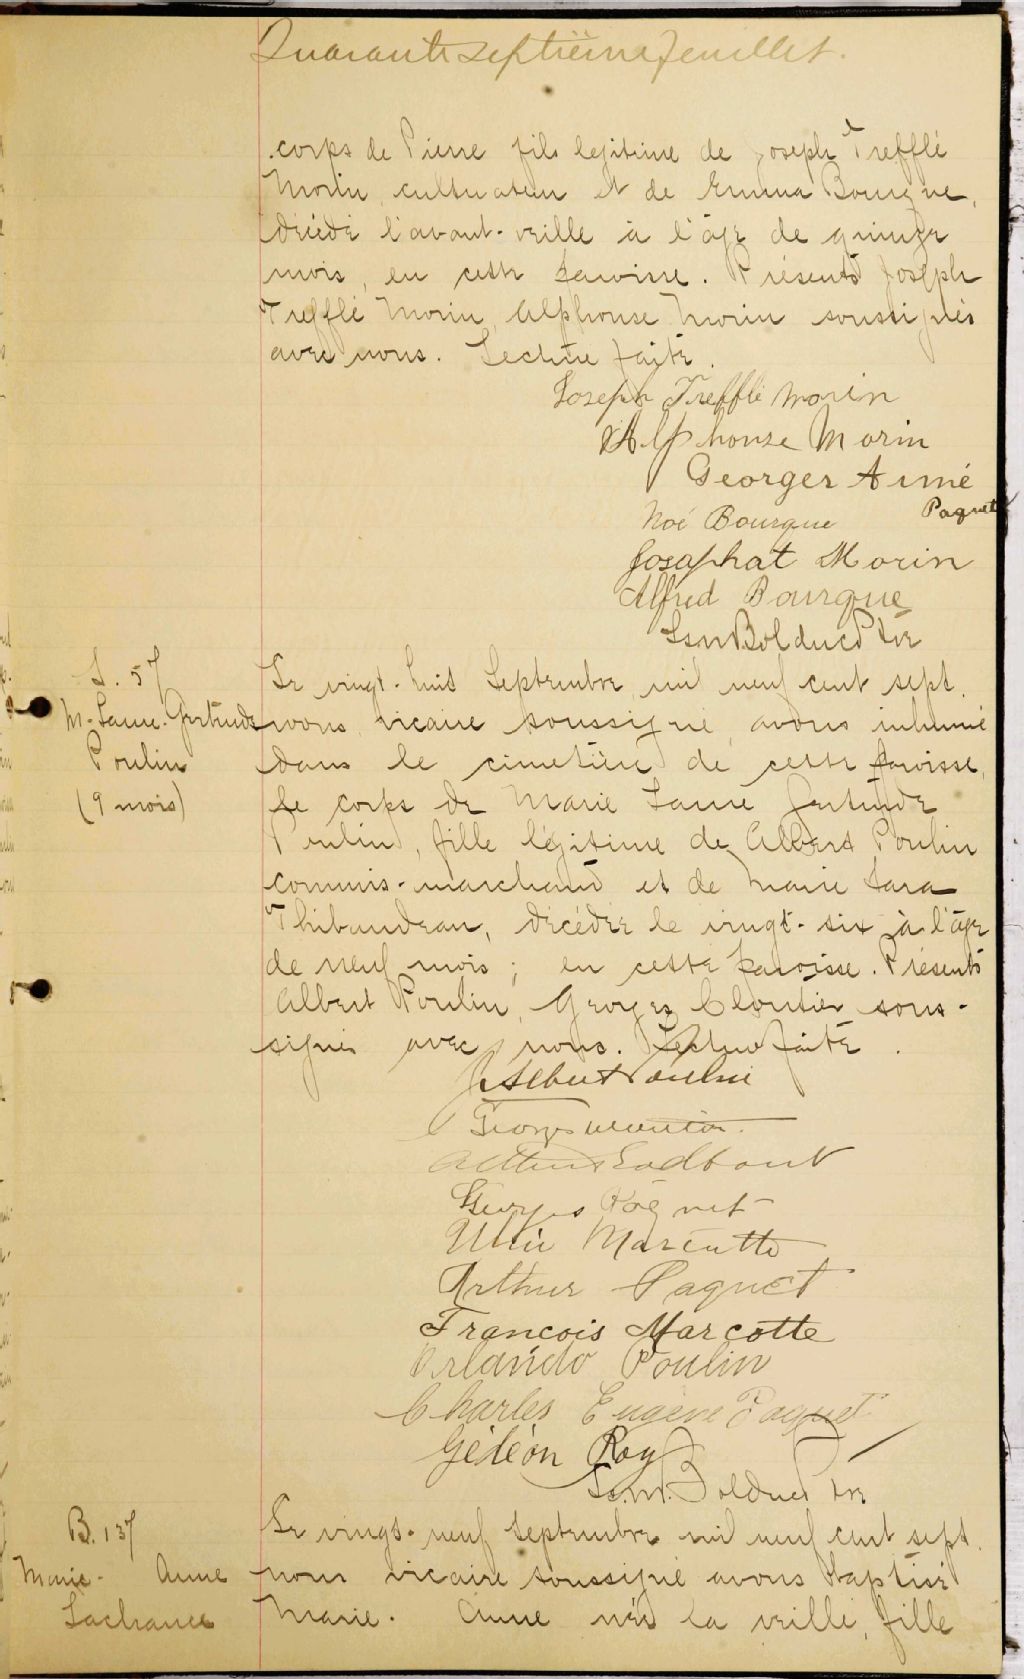 Quarante septième feuillet.
corps de Pierre fils légitime de Joseph Trefflé
Morin, cultivateur et de Emma Bourque,
décédé l'avant-veille à l'âge de quinze
mois, en cette paroisse. Présents Joseph
Trefflé Morin, Alphonse Morin soussignés
avec nous. Lecture faite.
Joseph Trefflé Morin
Alphonse Morin
Georges Aimé
Paquet
Noé Bourque
Josaphat Morin
Alfred Bourque
Bolduc Ptre
S. 57
M-Laure-Gertrude
Poulin
(9 mois)
Le vingt-huit Septembre mil neuf cent sept,
nous, vicaire soussigné, avons inhumé
dans le cimetière de cette paroisse,
le corps de Marie Laure Gertrude
Poulin, fille légitime de Albert Poulin
commis-marchand et de Marie Lara
Thibaudeau, décédée le vingt-six à l'âge
de neuf mois ; en cette paroisse. Présents
Albert Poulin, Georges Cloutier sous-
signés avec nous. Lecture faite.
J Albert Poulin
Georges Cloutier
Arthur Godbout
Georges Paquet
Marcotte
Arthur Paquet
Francois Marcotte
Orlando Poulin
Charles Eugène Paquet
Gédéon Roy
Bolduc Ptre
B. 137
Marie-Anne
Lachance
Le vingt-neuf Septembre mil neuf cent sept,
nous vicaire soussigné avons baptisé
Marie-Anne née la veille, fille